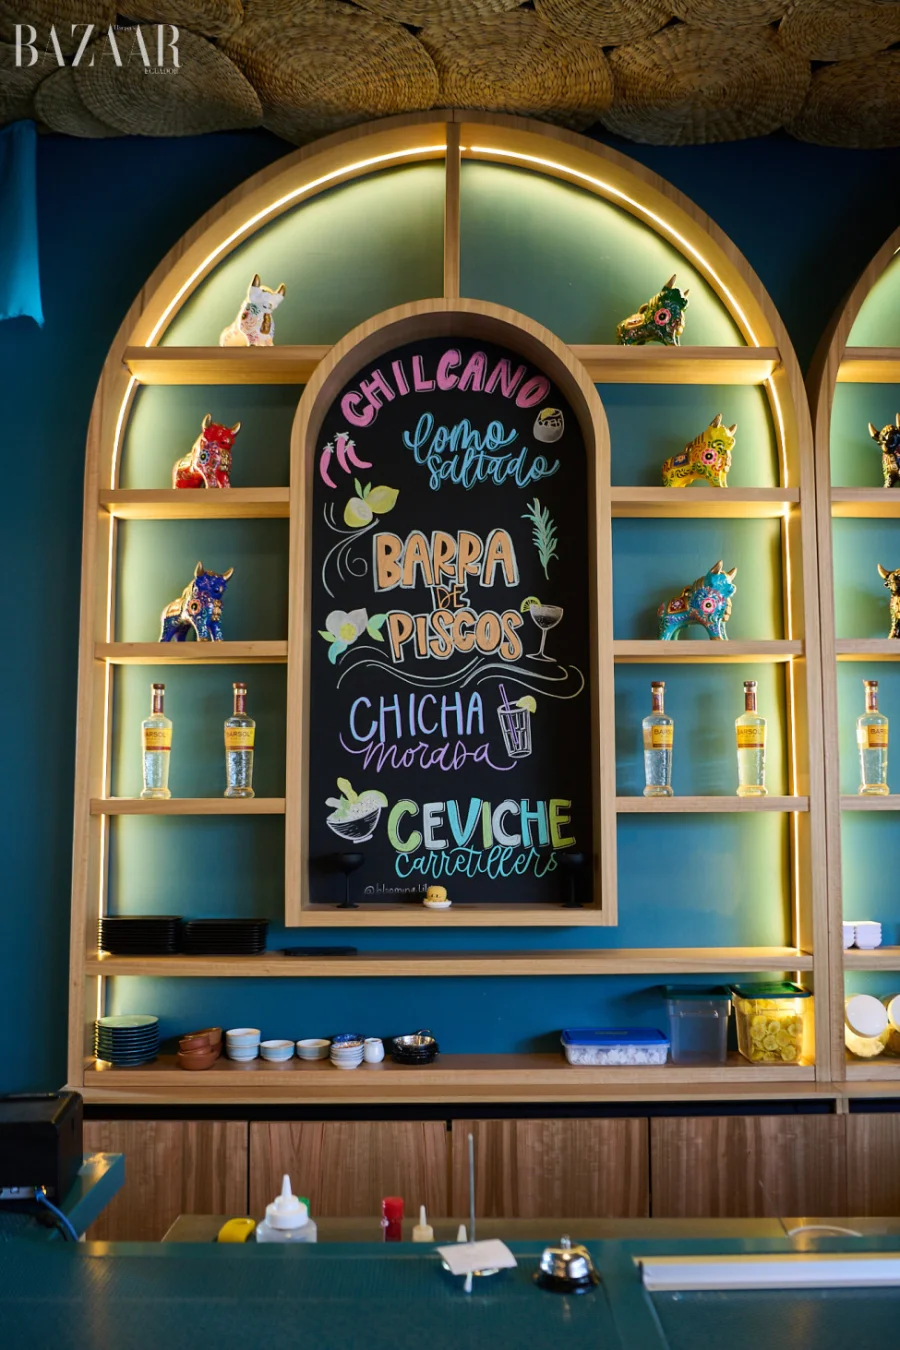 BAZAAR
ECUADOR
CHILCANO
lomo
saltado
BARRA
DE
PISCOS
CHICHA
morada
CEVICHE
carretillero
BARSOL
BARSOL
BARSOL
BARSOL
BARSOL